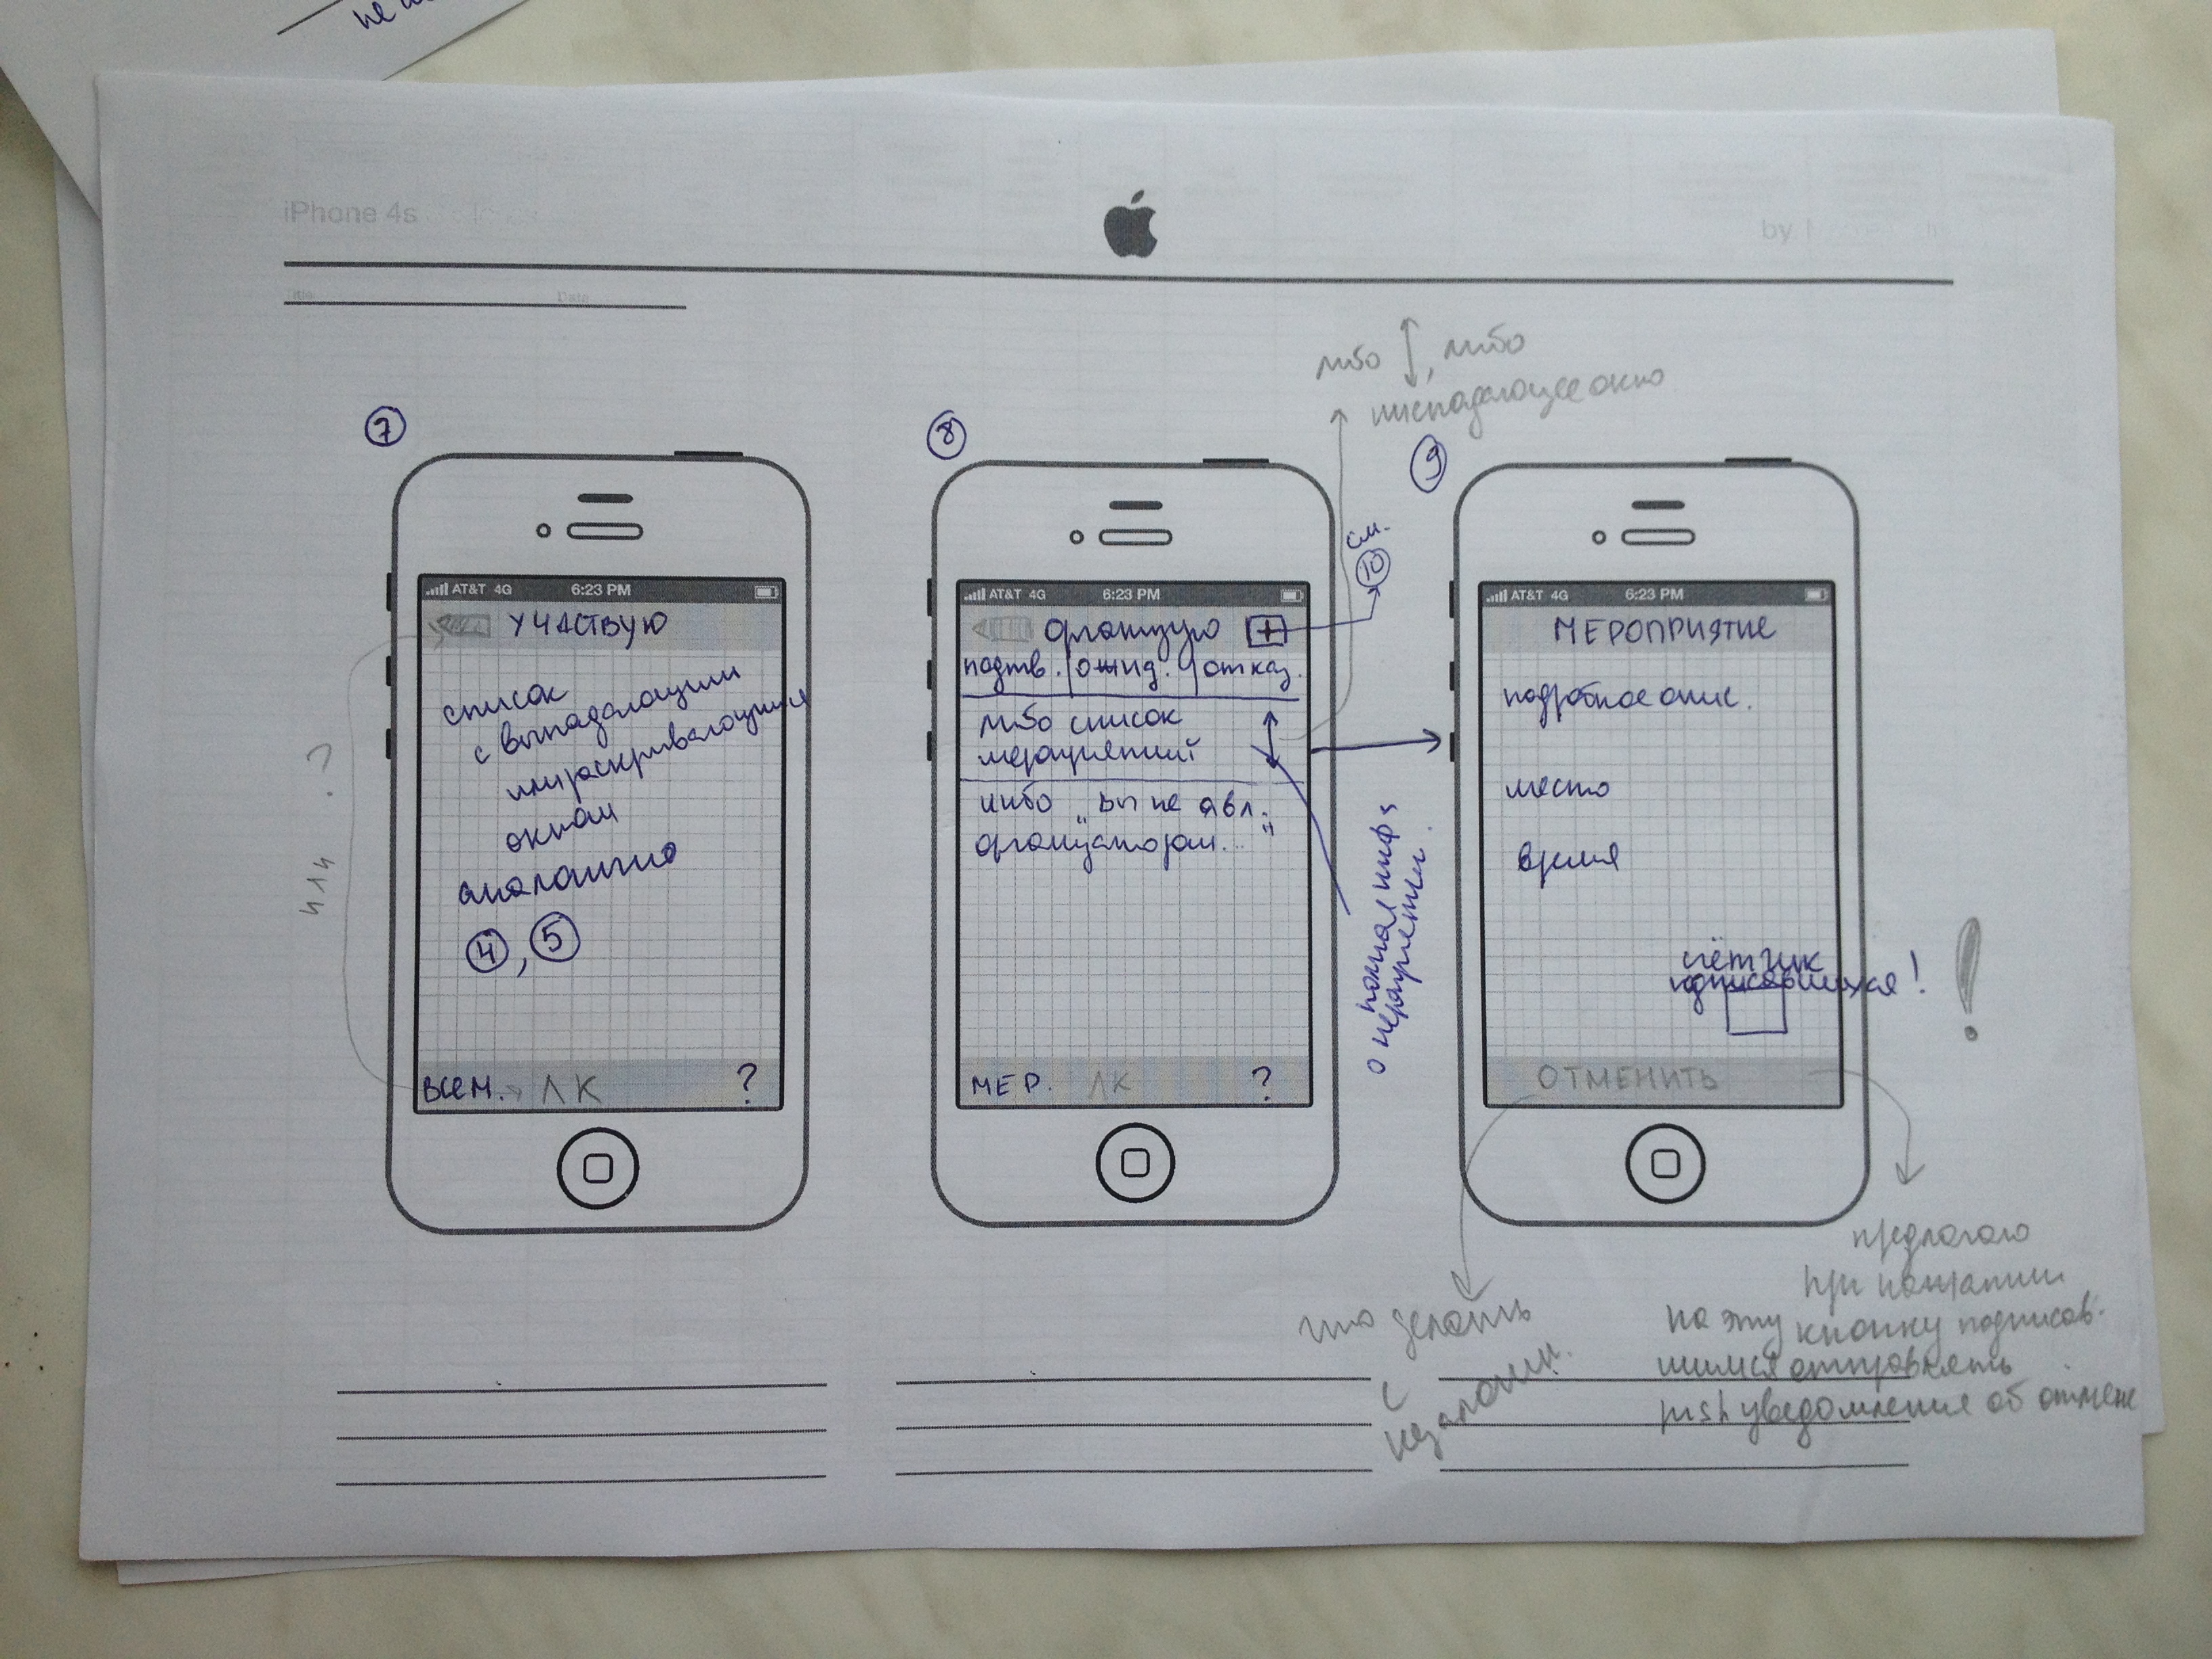 не
iPhone 4s
by
Title
Date
либо ↕, либо
ниспадающее окно
7
AT&T 4G 6:23 PM
УЧАСТВУЮ
список
с выпадающим
или раскрывающимся
окном
аналогично
4, 5
ВСЕ М. ЛК ?
или ?
8
см.
10
AT&T 4G 6:23 PM
организую +
подтв. | ожид. | отказ.
либо список
мероприятий
либо „вы не явл.
организатором..."
МЕР. ЛК ?
полная инф-я
о мероприятии.
9
AT&T 4G 6:23 PM
МЕРОПРИЯТИЕ
подробное опис.
место
время
счётчик
подписавшихся!
!
ОТМЕНИТЬ
что делать
с
предлагаю
при нажатии
на эту кнопку подписав-
шимся отправлять
push уведомление об отмене